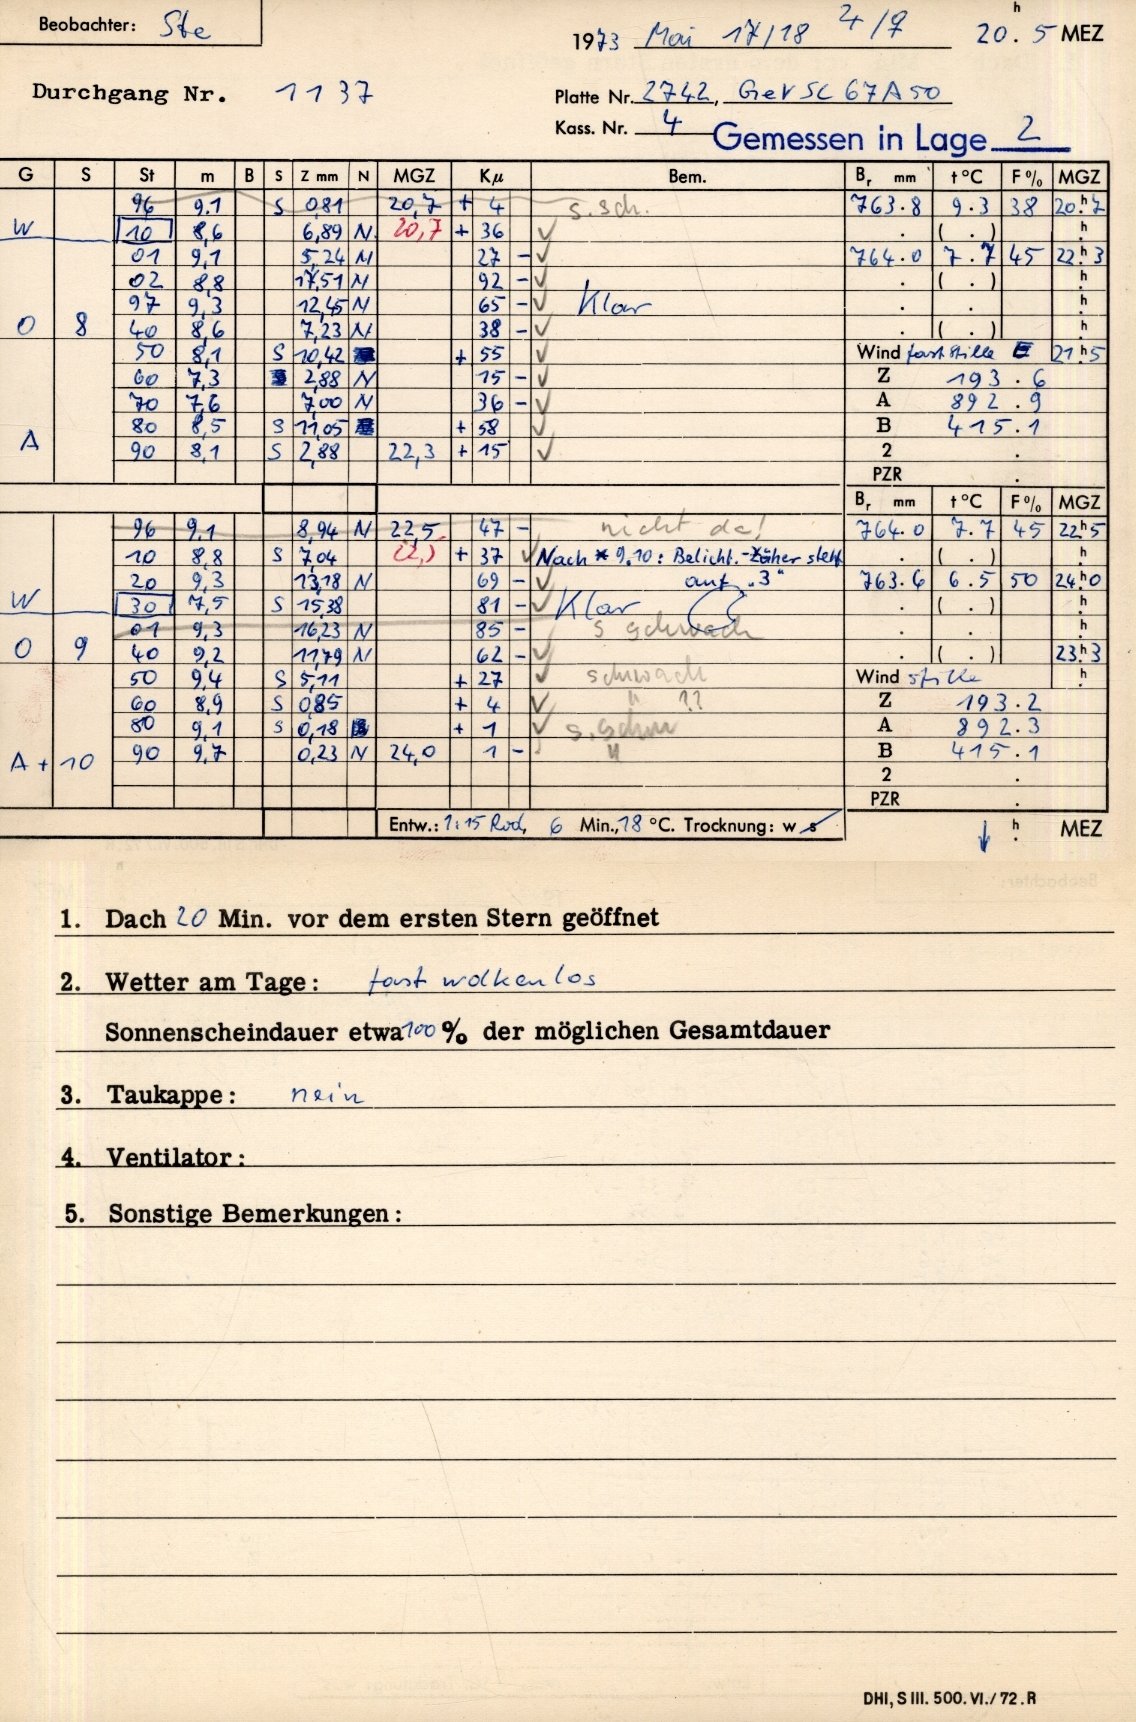 Beobachter: Ste
1973 Mai 17/18 20.5 h MEZ
Durchgang Nr. 1137
Platte Nr. 2742, GeVSC 67A50
Kass. Nr. 4 Gemessen in Lage 2
G S St m B S Z mm N MGZ Kμ Bem. Br mm t°C F% MGZ
96 9.1 S 0,81 20,7 + 4 s. sch. 763.8 9.3 38 20h7
W 10 8,6 6,89 N 20,7 + 36 . ( . ) h
01 9,1 5,24 N 27 - 764.0 7.7 45 22h3
02 8,8 17,51 N 92 - . ( . ) h
97 9,3 12,45 N 65 - Klar . . h
O 8 40 8,6 7,23 N 38 - . ( . ) h
50 8,1 S 10,42 + 55 Wind fast stille E 21h5
60 7,3 2,88 N 15 - Z 193.6
70 7,6 7,00 N 36 - A 892.9
A 80 8,5 S 11,05 + 58 B 415.1
90 8,1 S 2,88 22,3 + 15 2 .
PZR .
Br mm t°C F% MGZ
96 9,1 8,94 N 22,5 47 - nicht da! 764.0 7.7 45 22h5
10 8,8 S 7,04 + 37 Nach * 9.10: Belicht.-Zäher steht . ( . ) h
20 9,3 13,18 N 69 - auf "3" 763.6 6.5 50 24h0
W 30 7,5 S 15,38 81 - Klar . ( . ) h
01 9,3 16,23 N 85 - s schwach . . h
O 9 40 9,2 11,79 N 62 - . ( . ) 23h3
50 9,4 S 5,11 + 27 schwach Wind stille h
60 8,9 S 0,85 + 4 " ?? Z 193.2
80 9,1 S 0,18 + 1 s. schw A 892.3
A + 10 90 9,7 0,23 N 24,0 1 - " B 415.1
2 .
PZR .
Entw.: 1:15 Rod, 6 Min., 18 °C. Trocknung: w s ↓ h . MEZ
1. Dach 20 Min. vor dem ersten Stern geöffnet
2. Wetter am Tage: fast wolkenlos
Sonnenscheindauer etwa 100 % der möglichen Gesamtdauer
3. Taukappe: nein
4. Ventilator:
5. Sonstige Bemerkungen:
DHI, S III. 500. VI./72. R